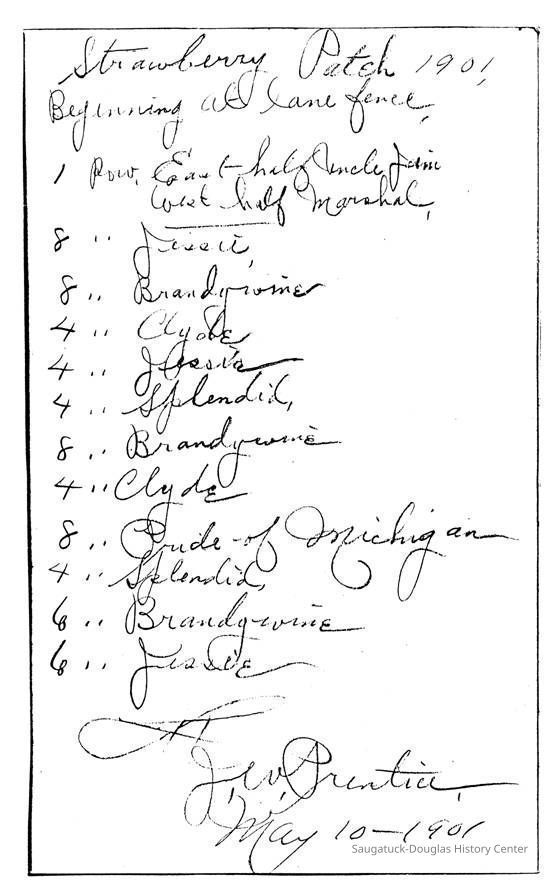 Strawberry Patch 1901,
Beginning at lane fence,
1 Row, East half Uncle Jim
West half Marshal,
8 " Jessie,
8 " Brandywine
4 " Clyde
4 " Jessie
4 " Splendid,
8 " Brandywine
4 " Clyde
8 " Pride of Michigan
4 " Splendid,
6 " Brandywine
6 " Jessie
Prentice,
May 10-1901
Saugatuck-Douglas History Center